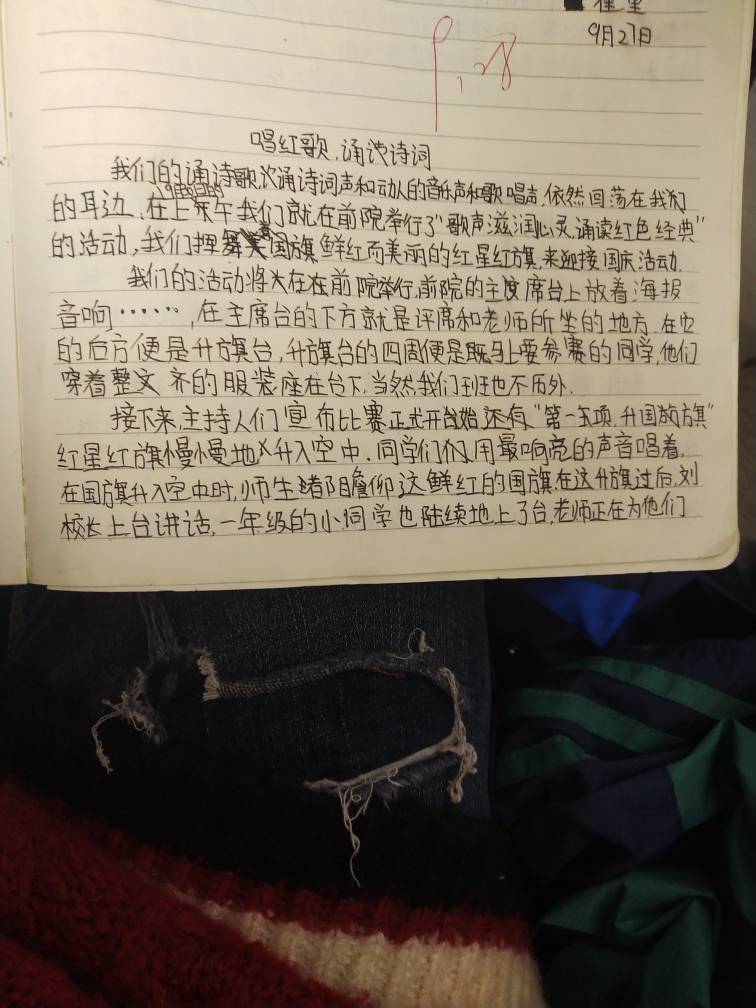 崔
9月27日
P.28
唱红歌,诵诗词
我们的诵诗歌诵诗词声和动人的音乐声和歌唱声,依然回荡在我们
的耳边,在上午我们就在前院举行了“歌声滋润心灵,诵读红色经典”
的活动,我们挥舞着国旗鲜红而美丽的红星红旗,来迎接国庆活动.
我们的活动将在在前院举行,前院的主席台上放着海报
音响……,在主席台的下方就是评席和老师所坐的地方.在它
的后方便是升旗台,升旗台的四周便是既马上要参赛的同学,他们
穿着整齐的服装座在台下,当然我们班也不历外.
接下来,主持人们宣布比赛正式开始,还有“第一项,升国旗”
红星红旗慢慢地升入空中.同学们用最响亮的声音唱着.
在国旗升入空中时,师生瞻仰这鲜红的国旗在这升旗过后,刘
校长上台讲话,一年级的小同学也陆续地上了台,老师正在为他们